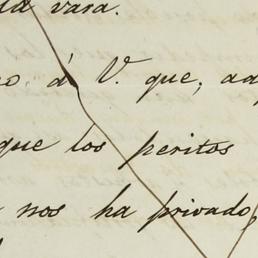 da vara.
á V. que, ad
que los peritos
nos ha privado,